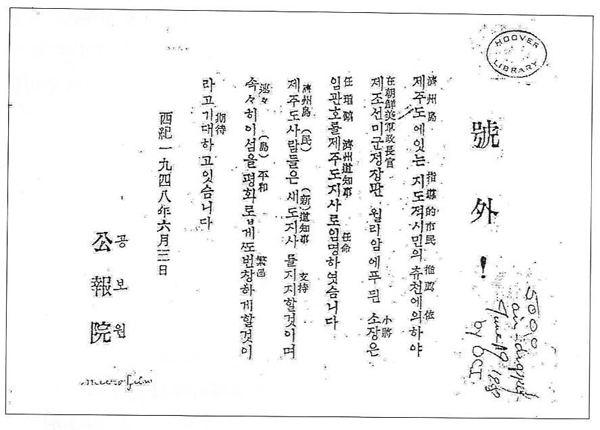 HOOVER LIBRARY
號外!
濟州島 指導的市民 推薦 依
제주도에잇는 지도적시민의 추천에의하야
在朝鮮美軍政長官 小將
제조선미군정장관 윌리암에푸띈 소장은
任琯鎬 濟州道知事 任命
임관호를제주도지사로임명하엿습니다
濟州島(民) (新)道知事 支持
제주도사람들은 새도지사를지지할것이며
速々 (島)平和
속々히이섬을평화로웁게또번창하게할것이
期待
라고기대하고잇습니다
西紀一九四八年六月三日
공보원
公報院
5000
air-dropped
June 19
by OCI
microfilm